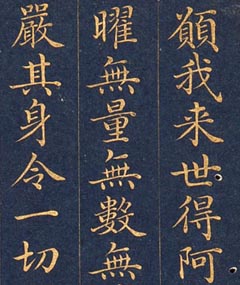 願我来世得阿
曜無量無數無
嚴其身令一切